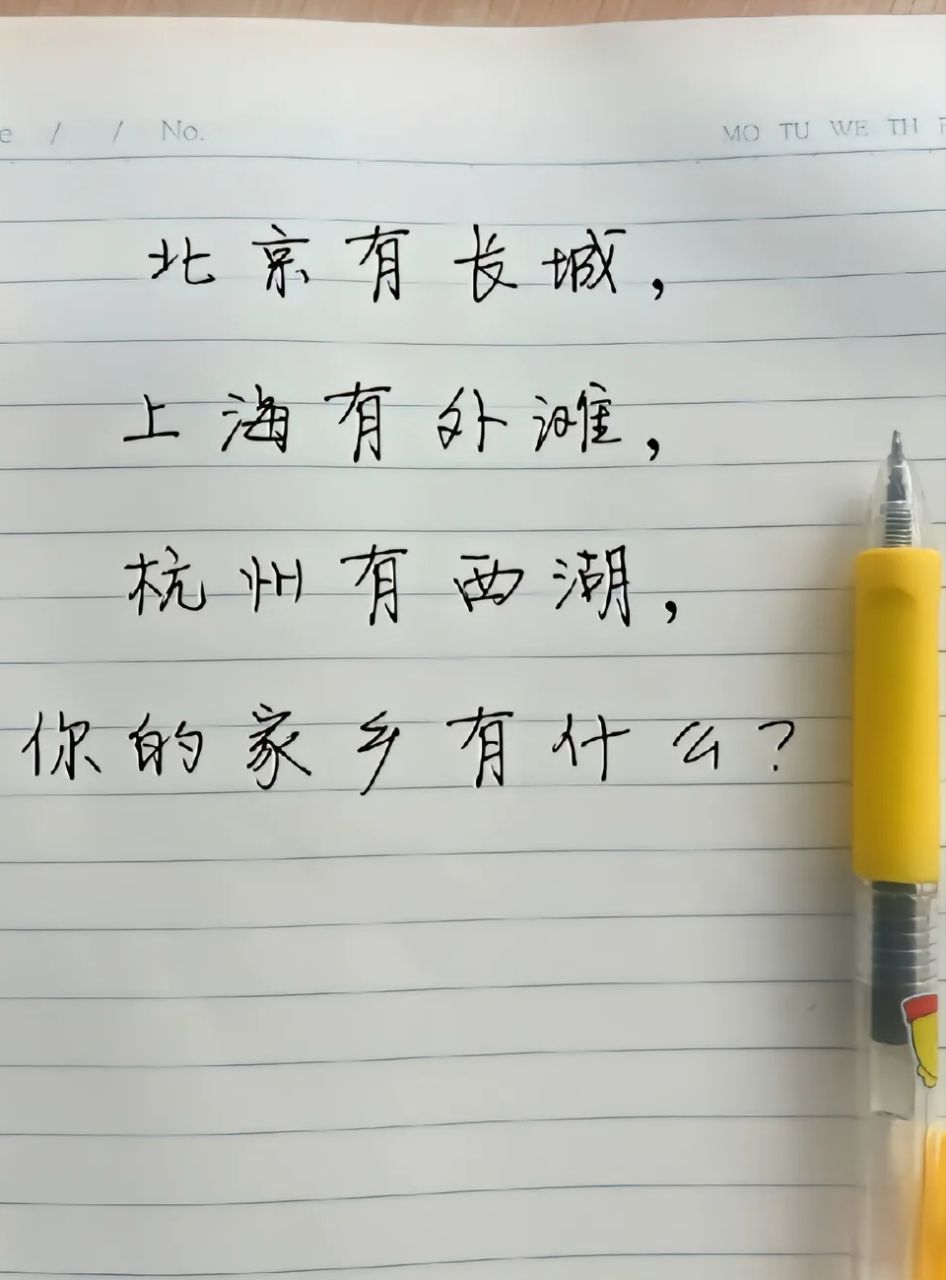 e / / No.
MO TU WE TH F
北京有长城，
上海有外滩，
杭州有西湖，
你的家乡有什么？